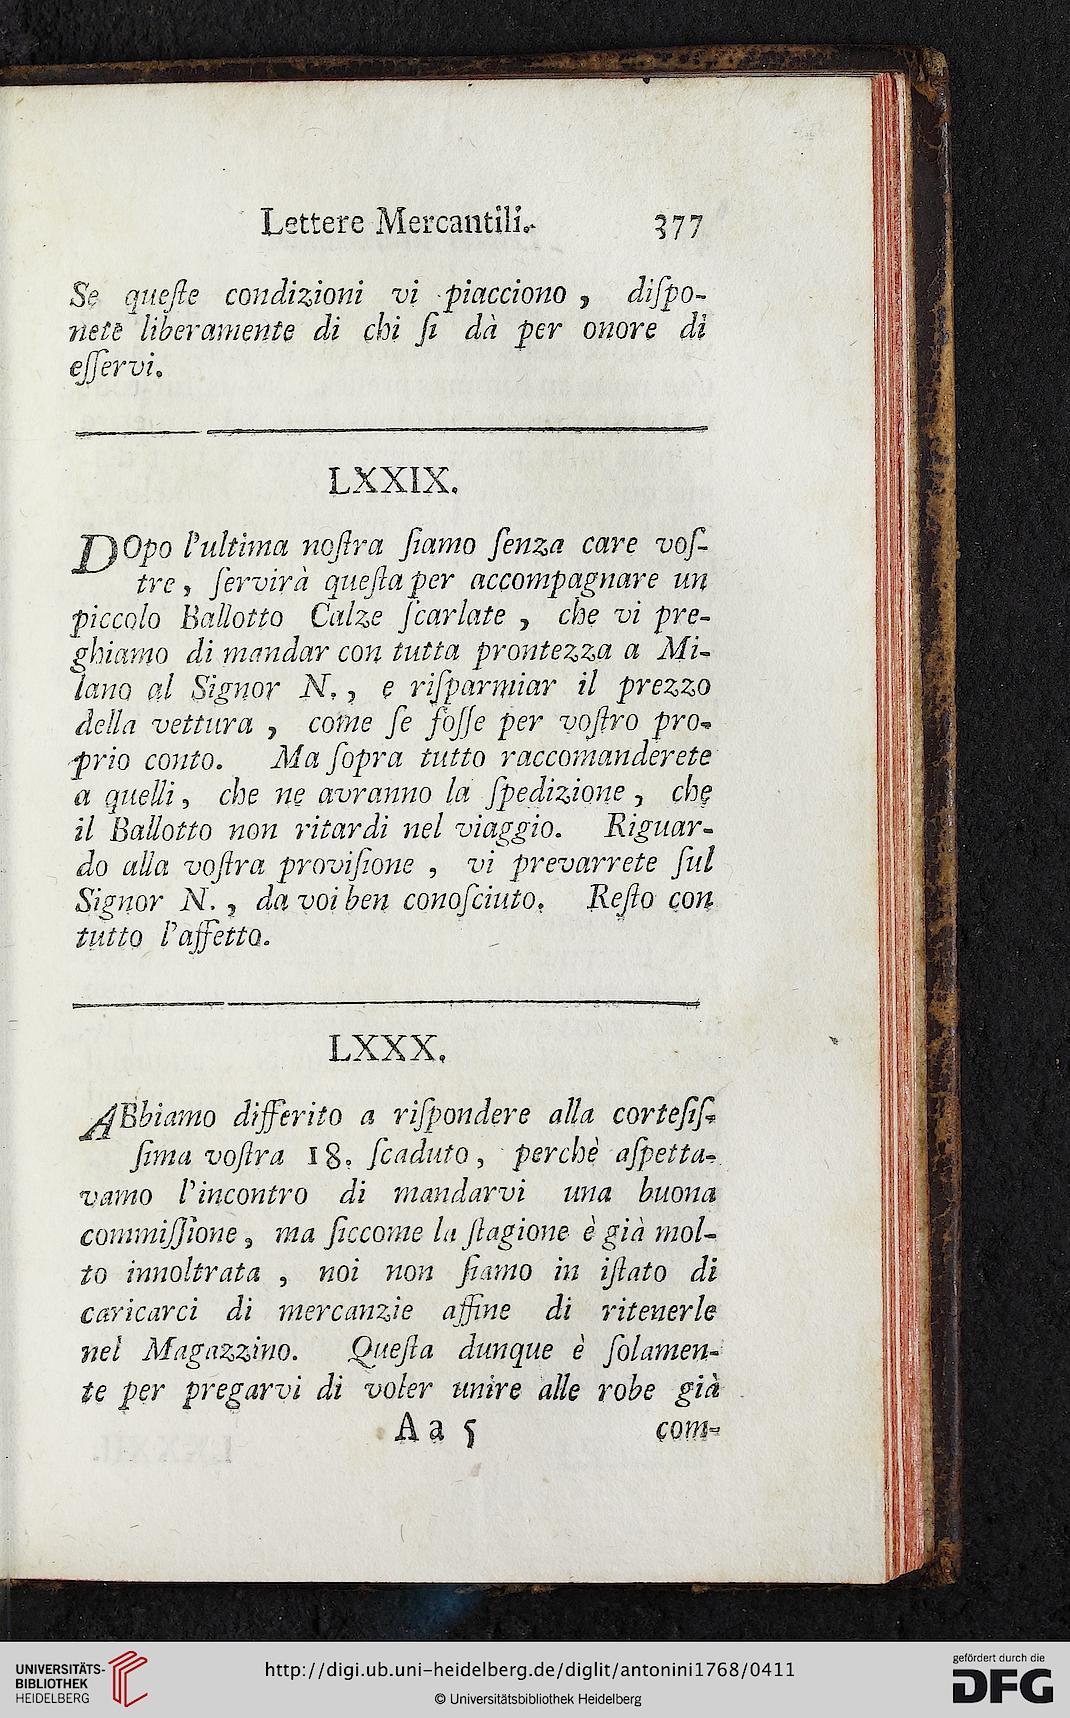 Lettere Mercantili. 377
Se queſte condizioni vi piacciono, diſpo-
nete liberamente di chi ſi dà per onore di
eſſervi.
LXXIX.
DOpo l'ultima noſtra ſiamo ſenza care voſ-
tre, ſervirà queſta per accompagnare un
piccolo Ballotto Calze ſcarlate, che vi pre-
ghiamo di mandar con tutta prontezza a Mi-
lano al Signor N., e riſparmiar il prezzo
della vettura, come ſe foſſe per voſtro pro-
prio conto. Ma ſopra tutto raccomanderete
a quelli, che ne avranno la ſpedizione, che
il Ballotto non ritardi nel viaggio. Riguar-
do alla voſtra proviſione, vi prevarrete ſul
Signor N., da voi ben conoſciuto. Reſto con
tutto l'affetto.
LXXX.
ABbiamo differito a riſpondere alla corteſiſ-
ſima voſtra 18. ſcaduto, perchè aſpetta-
vamo l'incontro di mandarvi una buona
commiſſione, ma ſiccome la ſtagione è già mol-
to innoltrata, noi non ſiamo in iſtato di
caricarci di mercanzie affine di ritenerle
nel Magazzino. Queſta dunque è ſolamen-
te per pregarvi di voler unire alle robe già
A a 5 com-
UNIVERSITÄTS-
BIBLIOTHEK
HEIDELBERG
http://digi.ub.uni-heidelberg.de/diglit/antonini1768/0411
© Universitätsbibliothek Heidelberg
gefördert durch die
DFG